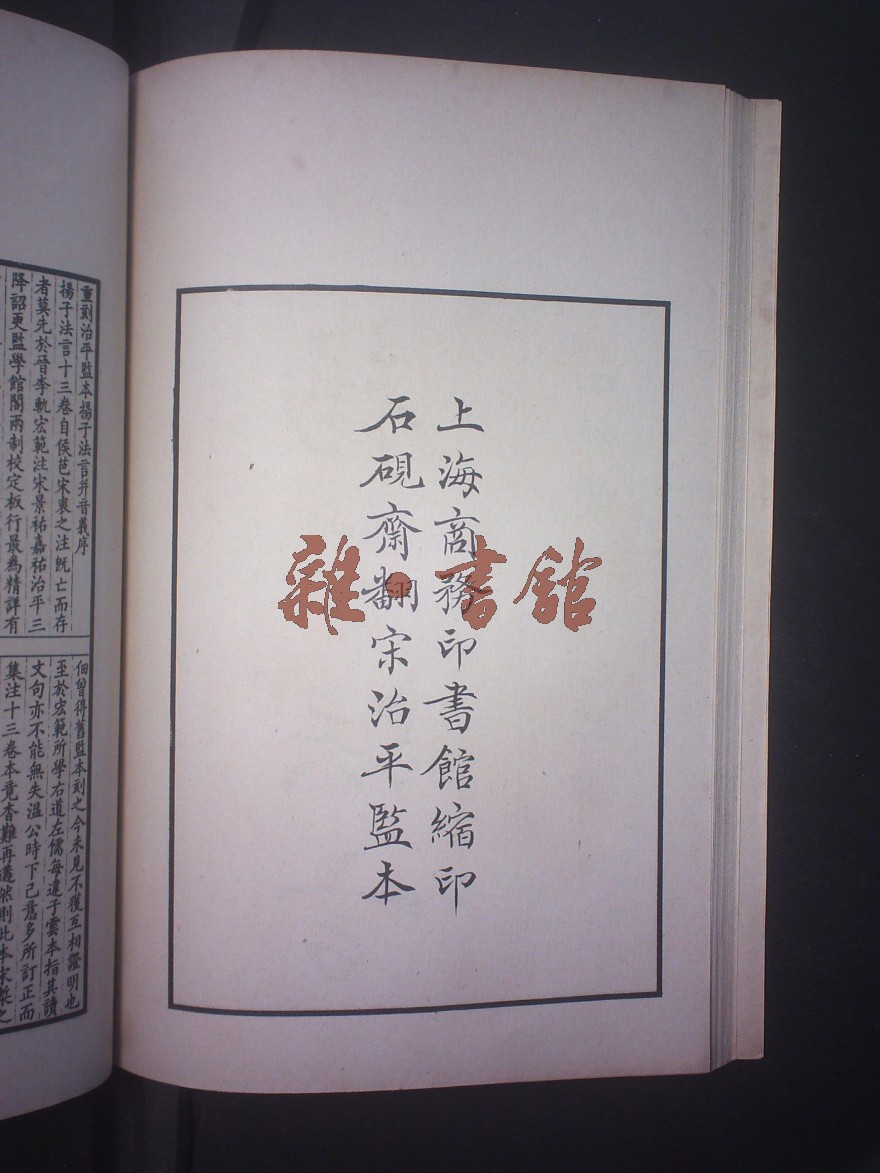 上海商務印書館縮印
石硯齋翻宋治平監本
雜·書館
重刻治平監本揚子法言并音義序
揚子法言十三卷自侯芭宋衷之注旣亡而存
者莫先於晉李軌宏範注宋景祐嘉祐治平三
降詔更監學館閣兩制校定板行最爲精詳有
佃曾得舊監本刻之今未見不獲互相證明也
至於宏範所學右道左儒每違子雲本指其讀
文句亦不能無失溫公時下己意多所訂正而
集注十三卷本竟杳難再遘然則此本宋槧之